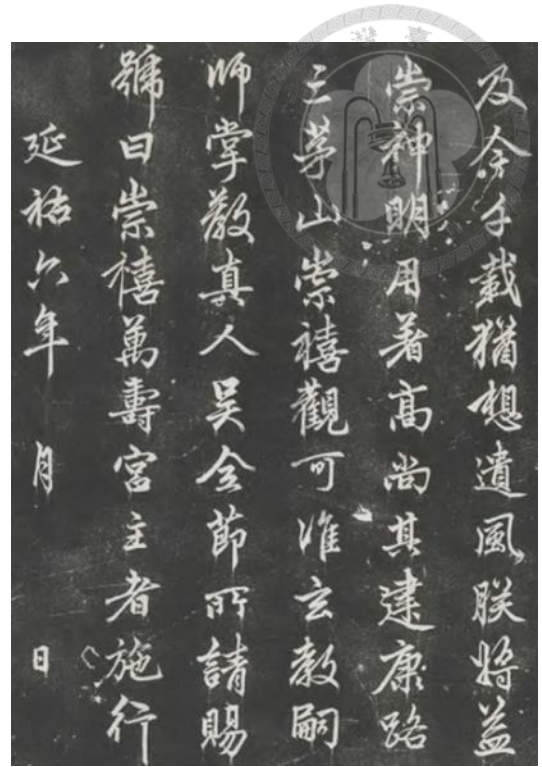 及余千載猶想遺風朕將益
崇神明用著高尚其建康路
三茅山崇禧觀可准玄教嗣
師掌教真人吴全節所請賜
號曰崇禧萬壽宮主者施行
延祐六年月日